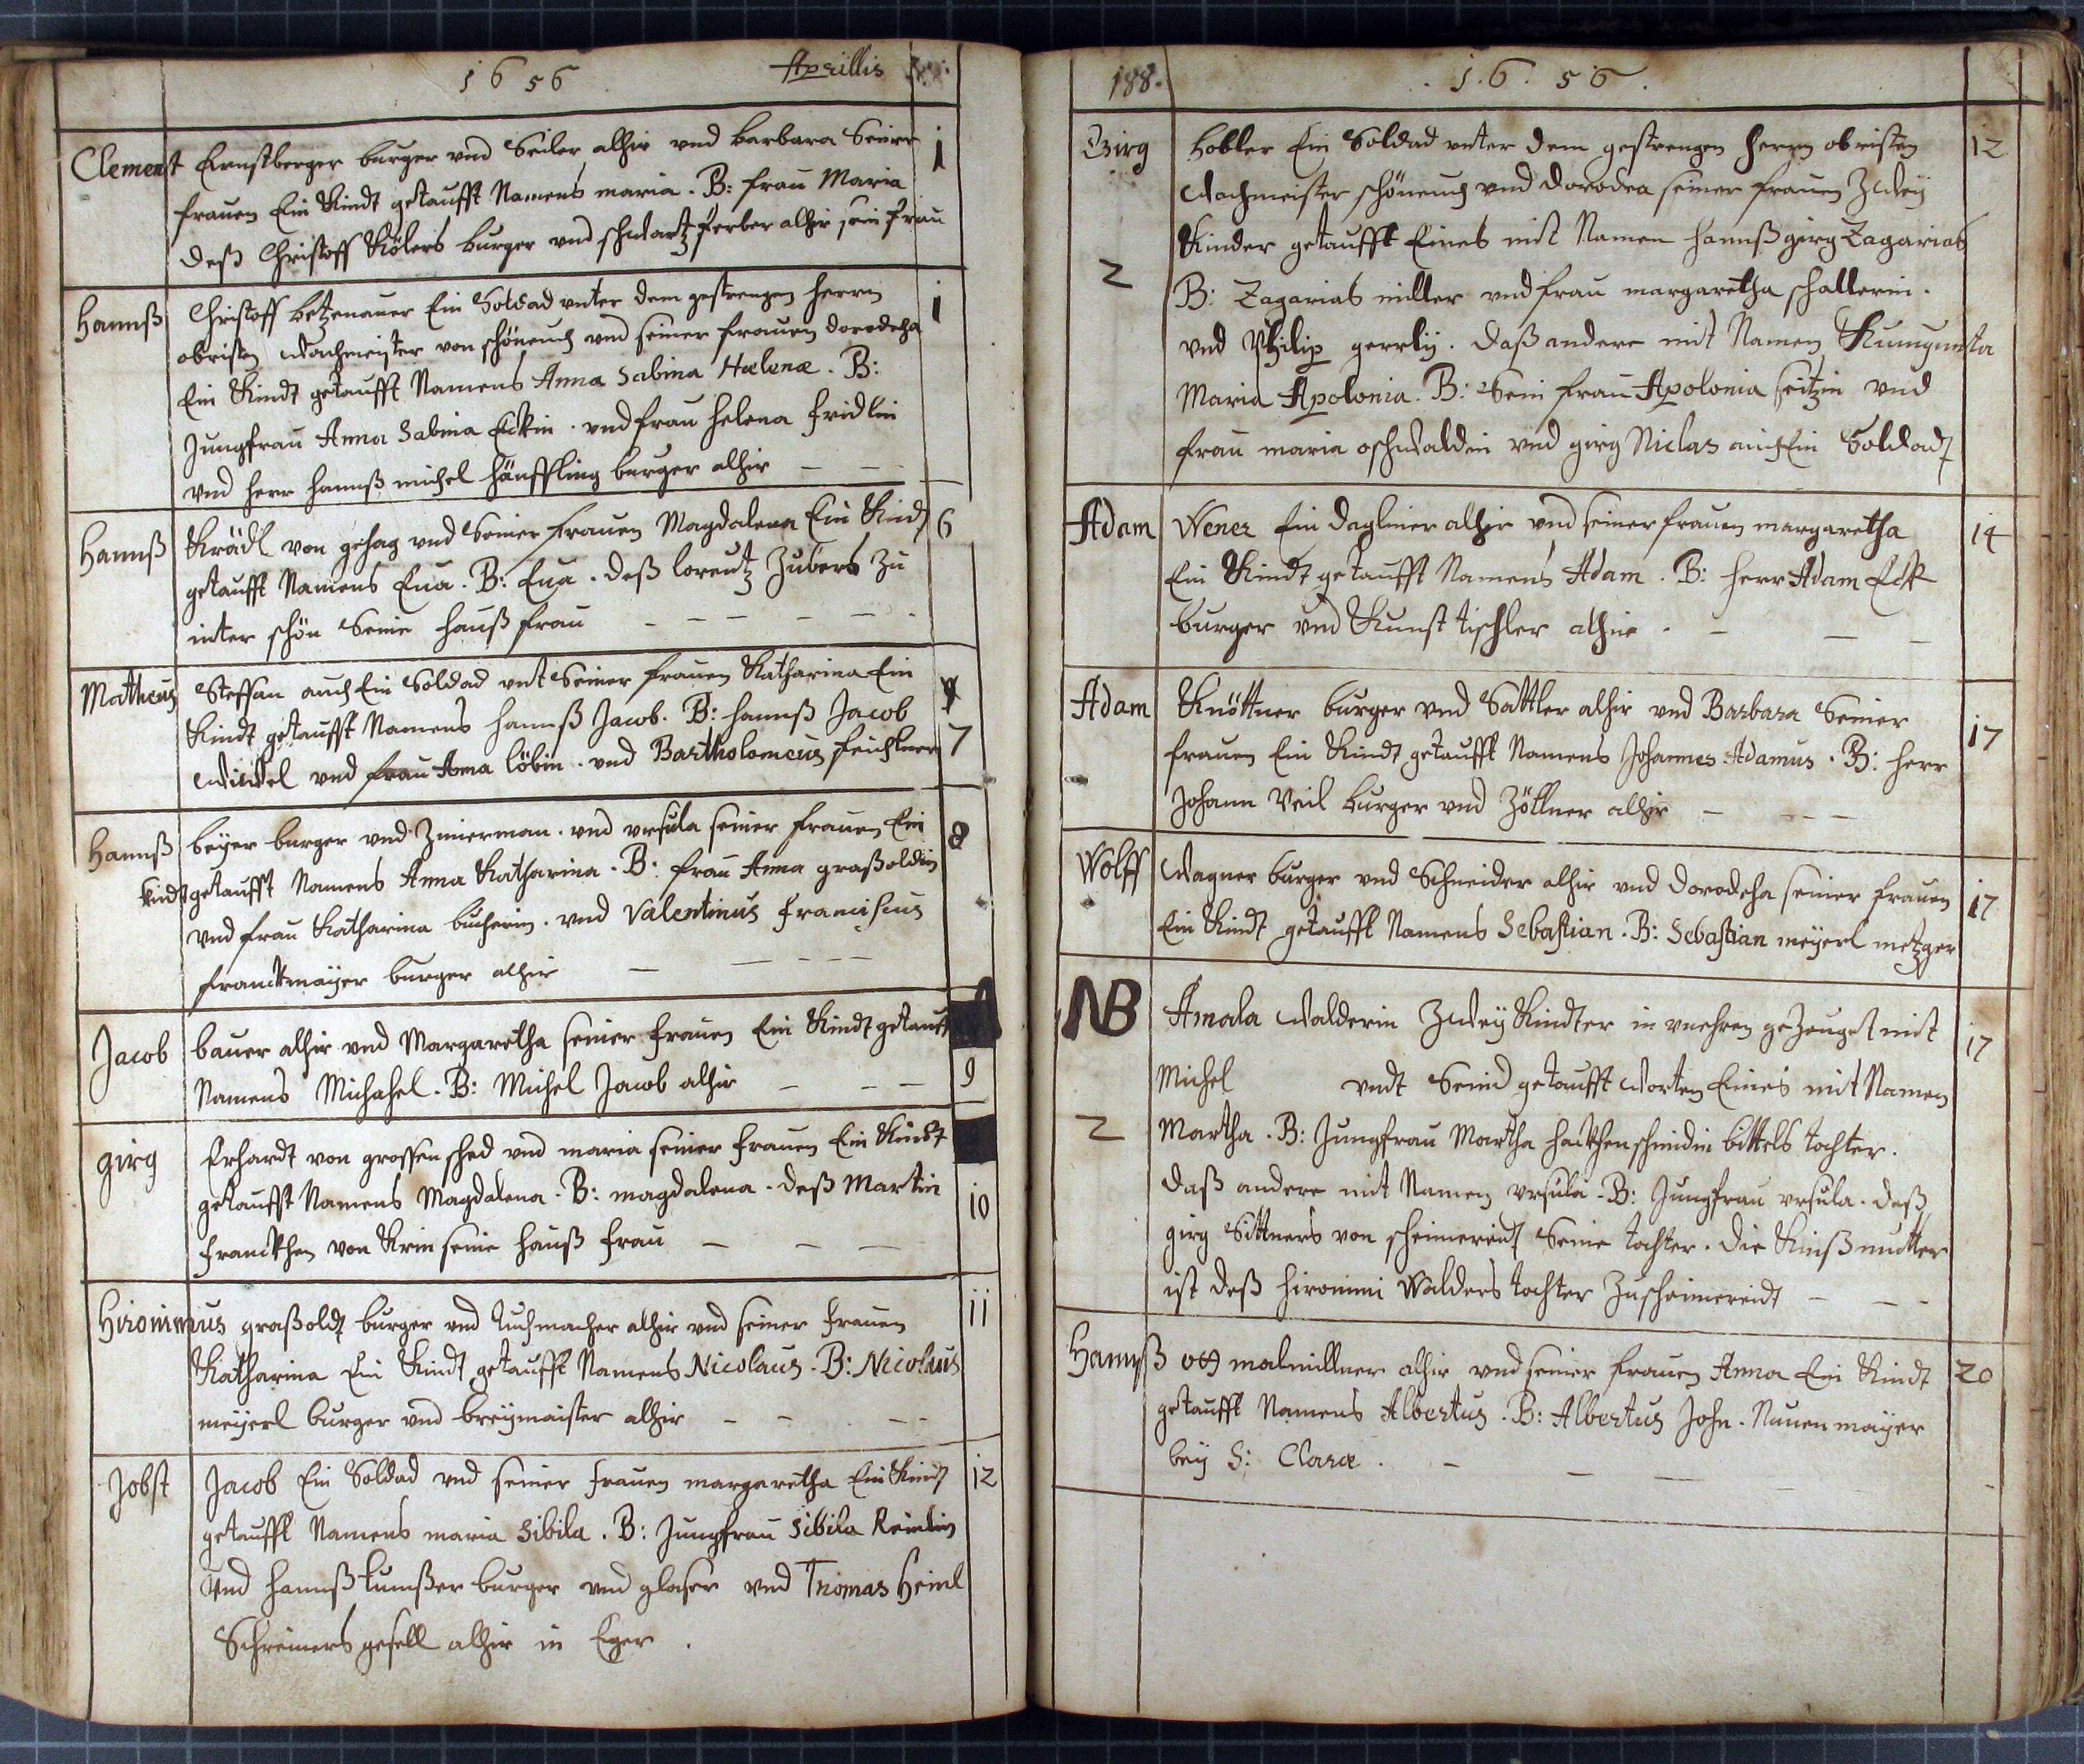 1656 Aprillis
Clement Ernstberger burger vnd Seiler alhir vnd barbara Seiner 1
frauen Ein Kindt getaufft Namens maria. B: frau Maria
deß Christoff Kölers burger vnd schwartz ferber alhir sein frau
Hannß Christoff betzenauer Ein Soldad vnter dem gestrengen herrn 1
obristen wachmeister von schöneich vnd seiner frauen dorodeha
Ein Kindt getaufft Namens Anna Sabina Hælenæ. B:
Jungfrau Anna Sabina Eckin. vnd frau helena fridlin
vnd herr hannß michel hänffling burger alhir
Hannß Krädl von gehag vnd Seiner frauen Magdalena Ein Kindt 6
getaufft Namens Eua. B: Eua. deß lorentz Zubers zu
inter schön Seine hauß frau
Matheus Steffan auch Ein Soldad vnt Seiner frauen Katharina Ein
Kindt getaufft Namens hannß Jacob. B: hannß Jacob
windel vnd frau Anna löbin. vnd Bartholomeus feichtner 7
Hannß beÿer burger vnd Zimerman. vnd vrsula seiner frauen Ein 8
kindt getaufft Namens Anna Katharina. B: frau Anna graßoldin
vnd frau Katharina bucherin. vnd Valentinus Franciscus
franckmaÿer burger alhir
Jacob bauer alhir vnd Margaretha seiner frauen Ein Kindt getaufft
Namens Michahel. B: Michel Jacob alhir 9
girg Erhardt von grossen sched vnd maria seiner frauen Ein Kindt
getaufft Namens Magdalena. B: magdalena. deß Martin 10
franckhen von Krin seine hauß frau
Hironimus graßoldt burger vnd tuchmacher alhir vnd seiner frauen 11
Katharina Ein Kindt getaufft Namens Nicolaus. B: Nicolaus
meÿerl burger vnd breÿmaister alhir
Jobst Jacob Ein Soldad vnd seiner frauen margaretha Ein Kindt 12
getaufft Namens maria Sibila. B: Jungfrau Sibila
Vnd hannß burger vnd glaser vnd Thomas Heinl
Schreiners gesell alhir in Eger.
188. 1.6.56.
Girg hobler Ein Soldad vnter dem gestrengen herrn obristen 12
wachmeister schöneich vnd dorodea seiner frauen Zweÿ
Kinder getaufft Eines mit Namen hannß girg Zagarias
2 B: Zagarias miller vnd frau margaretha schallerin.
vnd Philip. daß andere mit Namen Kunigunta
Maria Apolonia. B: Sein frau Apolonia seitzin vnd
frau maria oschwaldin vnd girg Niclas auch Ein Soldadt
Adam Wener Ein daglener alhir vnd seiner frauen margaretha 14
Ein Kindt getaufft Namens Adam. B: herr Adam Eck
burger vnd Kunst tischler alhir.
Adam Knöttner burger vnd Sattler alhir vnd Barbara Seiner 17
frauen Ein Kindt getaufft Namens Johannes Adamus. B: herr
Johann Veil burger vnd Zöllner alhir
Wolff Wagner burger vnd Schneider alhir vnd dorodeha seiner frauen 17
Ein Kindt getaufft Namens Sebastian. B: Sebastian meÿerl metzger
NB Amala walderin Zweÿ Kindter in vnehren geZeuget mit 17
Michel vndt Seind getaufft worten Eines mit Namen
2 Martha. B: Jungfrau Martha hackhenschmidin bittels tochter.
daß andere mit Namen vrsula. B: Jungfrau vrsula. deß
girg Sittners von scheinereidt Seine tochter. die Kinßmutter
ist deß hironimi Walders tochter Zu scheinereidt
Hannß ott malmillner alhir vnd seiner frauen Anna Ein Kindt 20
getaufft Namens Albertus. B: Albertus John. Neuenmaÿer
beÿ S: Claræ.